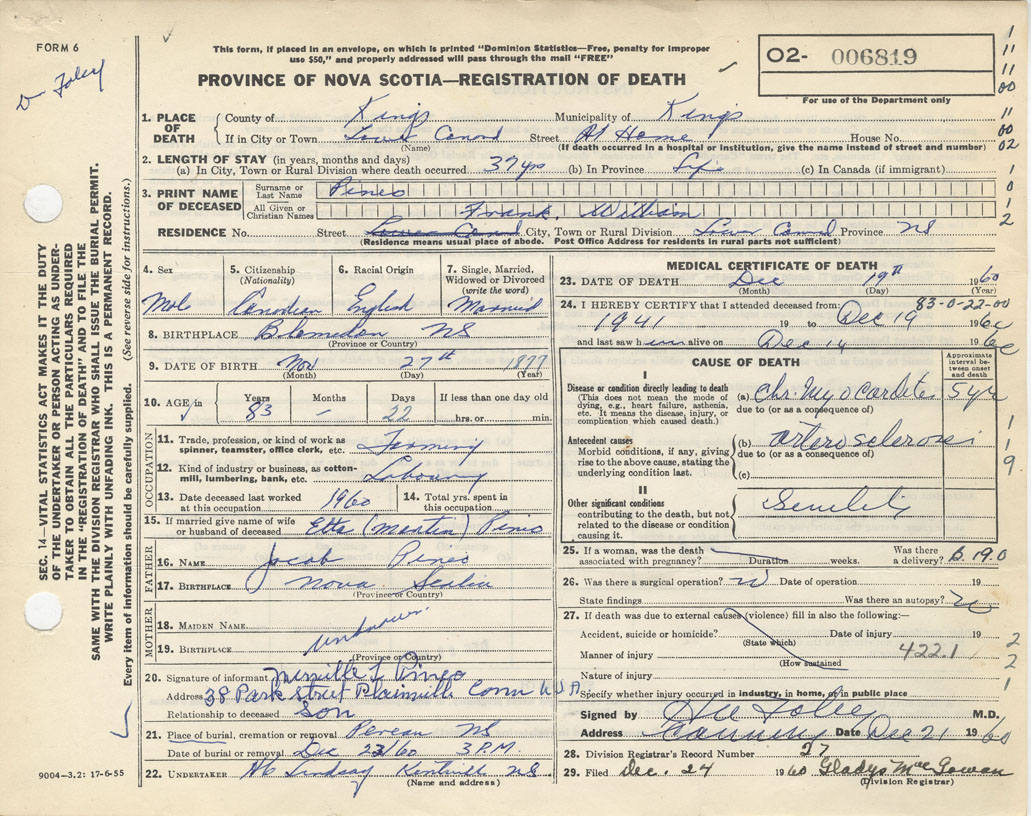 FORM 6
Dr Foley
This form, if placed in an envelope, on which is printed "Dominion Statistics—Free, penalty for improper
use $50," and properly addressed will pass through the mail "FREE"
PROVINCE OF NOVA SCOTIA—REGISTRATION OF DEATH
O2- 006819
For use of the Department only
1. PLACE OF DEATH
County of Kings Municipality of Kings
If in City or Town Street At Home House No.
(Name) (If death occurred in a hospital or institution, give the name instead of street and number)
2. LENGTH OF STAY (in years, months and days)
(a) In City, Town or Rural Division where death occurred 37 yrs (b) In Province Life (c) In Canada (if immigrant)
3. PRINT NAME OF DECEASED
Surname or Last Name Pineo
All Given or Christian Names Frank William
RESIDENCE No. Street City, Town or Rural Division Province NS
(Residence means usual place of abode. Post Office Address for residents in rural parts not sufficient)
4. Sex Male
5. Citizenship (Nationality) Canadian
6. Racial Origin English
7. Single, Married, Widowed or Divorced (write the word) Married
8. BIRTHPLACE Blomidon NS
(Province or Country)
9. DATE OF BIRTH Nov 27th 1877
(Month) (Day) (Year)
10. AGE Years 83 Months – Days 22 If less than one day old hrs. or min.
OCCUPATION
11. Trade, profession, or kind of work as spinner, teamster, office clerk, etc. Farming
12. Kind of industry or business, as cotton-mill, lumbering, bank, etc. Labouring
13. Date deceased last worked at this occupation 1960
14. Total yrs. spent in this occupation
15. If married give name of wife or husband of deceased Etta (Martin) Pineo
FATHER
16. NAME Jacob Pineo
17. BIRTHPLACE Nova Scotia
(Province or Country)
MOTHER
18. MAIDEN NAME
19. BIRTHPLACE unknown
(Province or Country)
20. Signature of informant L Pineo
Address 38 Park Street Plainville Conn USA
Relationship to deceased Son
21. Place of burial, cremation or removal Pereau NS
Date of burial or removal Dec 23/60 3 P.M.
22. UNDERTAKER Lindsay Kentville NS
(Name and address)
9004—3.2: 17-6-55
SEC. 14—VITAL STATISTICS ACT MAKES IT THE DUTY
OF THE UNDERTAKER OR PERSON ACTING AS UNDER-
TAKER TO OBTAIN ALL THE PARTICULARS REQUIRED
IN THE "REGISTRATION OF DEATH" AND TO FILE THE
SAME WITH THE DIVISION REGISTRAR WHO SHALL ISSUE THE BURIAL PERMIT.
WRITE PLAINLY WITH UNFADING INK. THIS IS A PERMANENT RECORD.
Every item of information should be carefully supplied. (See reverse side for instructions.)
MEDICAL CERTIFICATE OF DEATH
23. DATE OF DEATH Dec 19th 1960
(Month) (Day) (Year)
24. I HEREBY CERTIFY that I attended deceased from: 83-0-22-00
1941 19 to Dec 19 1960
and last saw him alive on Dec 14 1960
CAUSE OF DEATH
Approximate interval between onset and death
I
Disease or condition directly leading to death
(This does not mean the mode of dying, e.g., heart failure, asthenia, etc. It means the disease, injury, or complication which caused death.)
(a) Chr. Myocarditis 5 yrs
due to (or as a consequence of)
Antecedent causes
Morbid conditions, if any, giving rise to the above cause, stating the underlying condition last.
(b) arterosclerosis
due to (or as a consequence of)
(c)
II
Other significant conditions
contributing to the death, but not related to the disease or condition causing it.
Senility
25. If a woman, was the death associated with pregnancy? Duration weeks. Was there a delivery? B.19.0
26. Was there a surgical operation? Date of operation 19
State findings Was there an autopsy?
27. If death was due to external causes (violence) fill in also the following:—
Accident, suicide or homicide? Date of injury 19
(State which)
Manner of injury 422.1
(How sustained)
Nature of injury
Specify whether injury occurred in industry, in home, or in public place
Signed by Foley M.D.
Address Canning Date Dec 21 1960
28. Division Registrar's Record Number 27
29. Filed Dec. 24 1960 Gladys MacGowan
(Division Registrar)